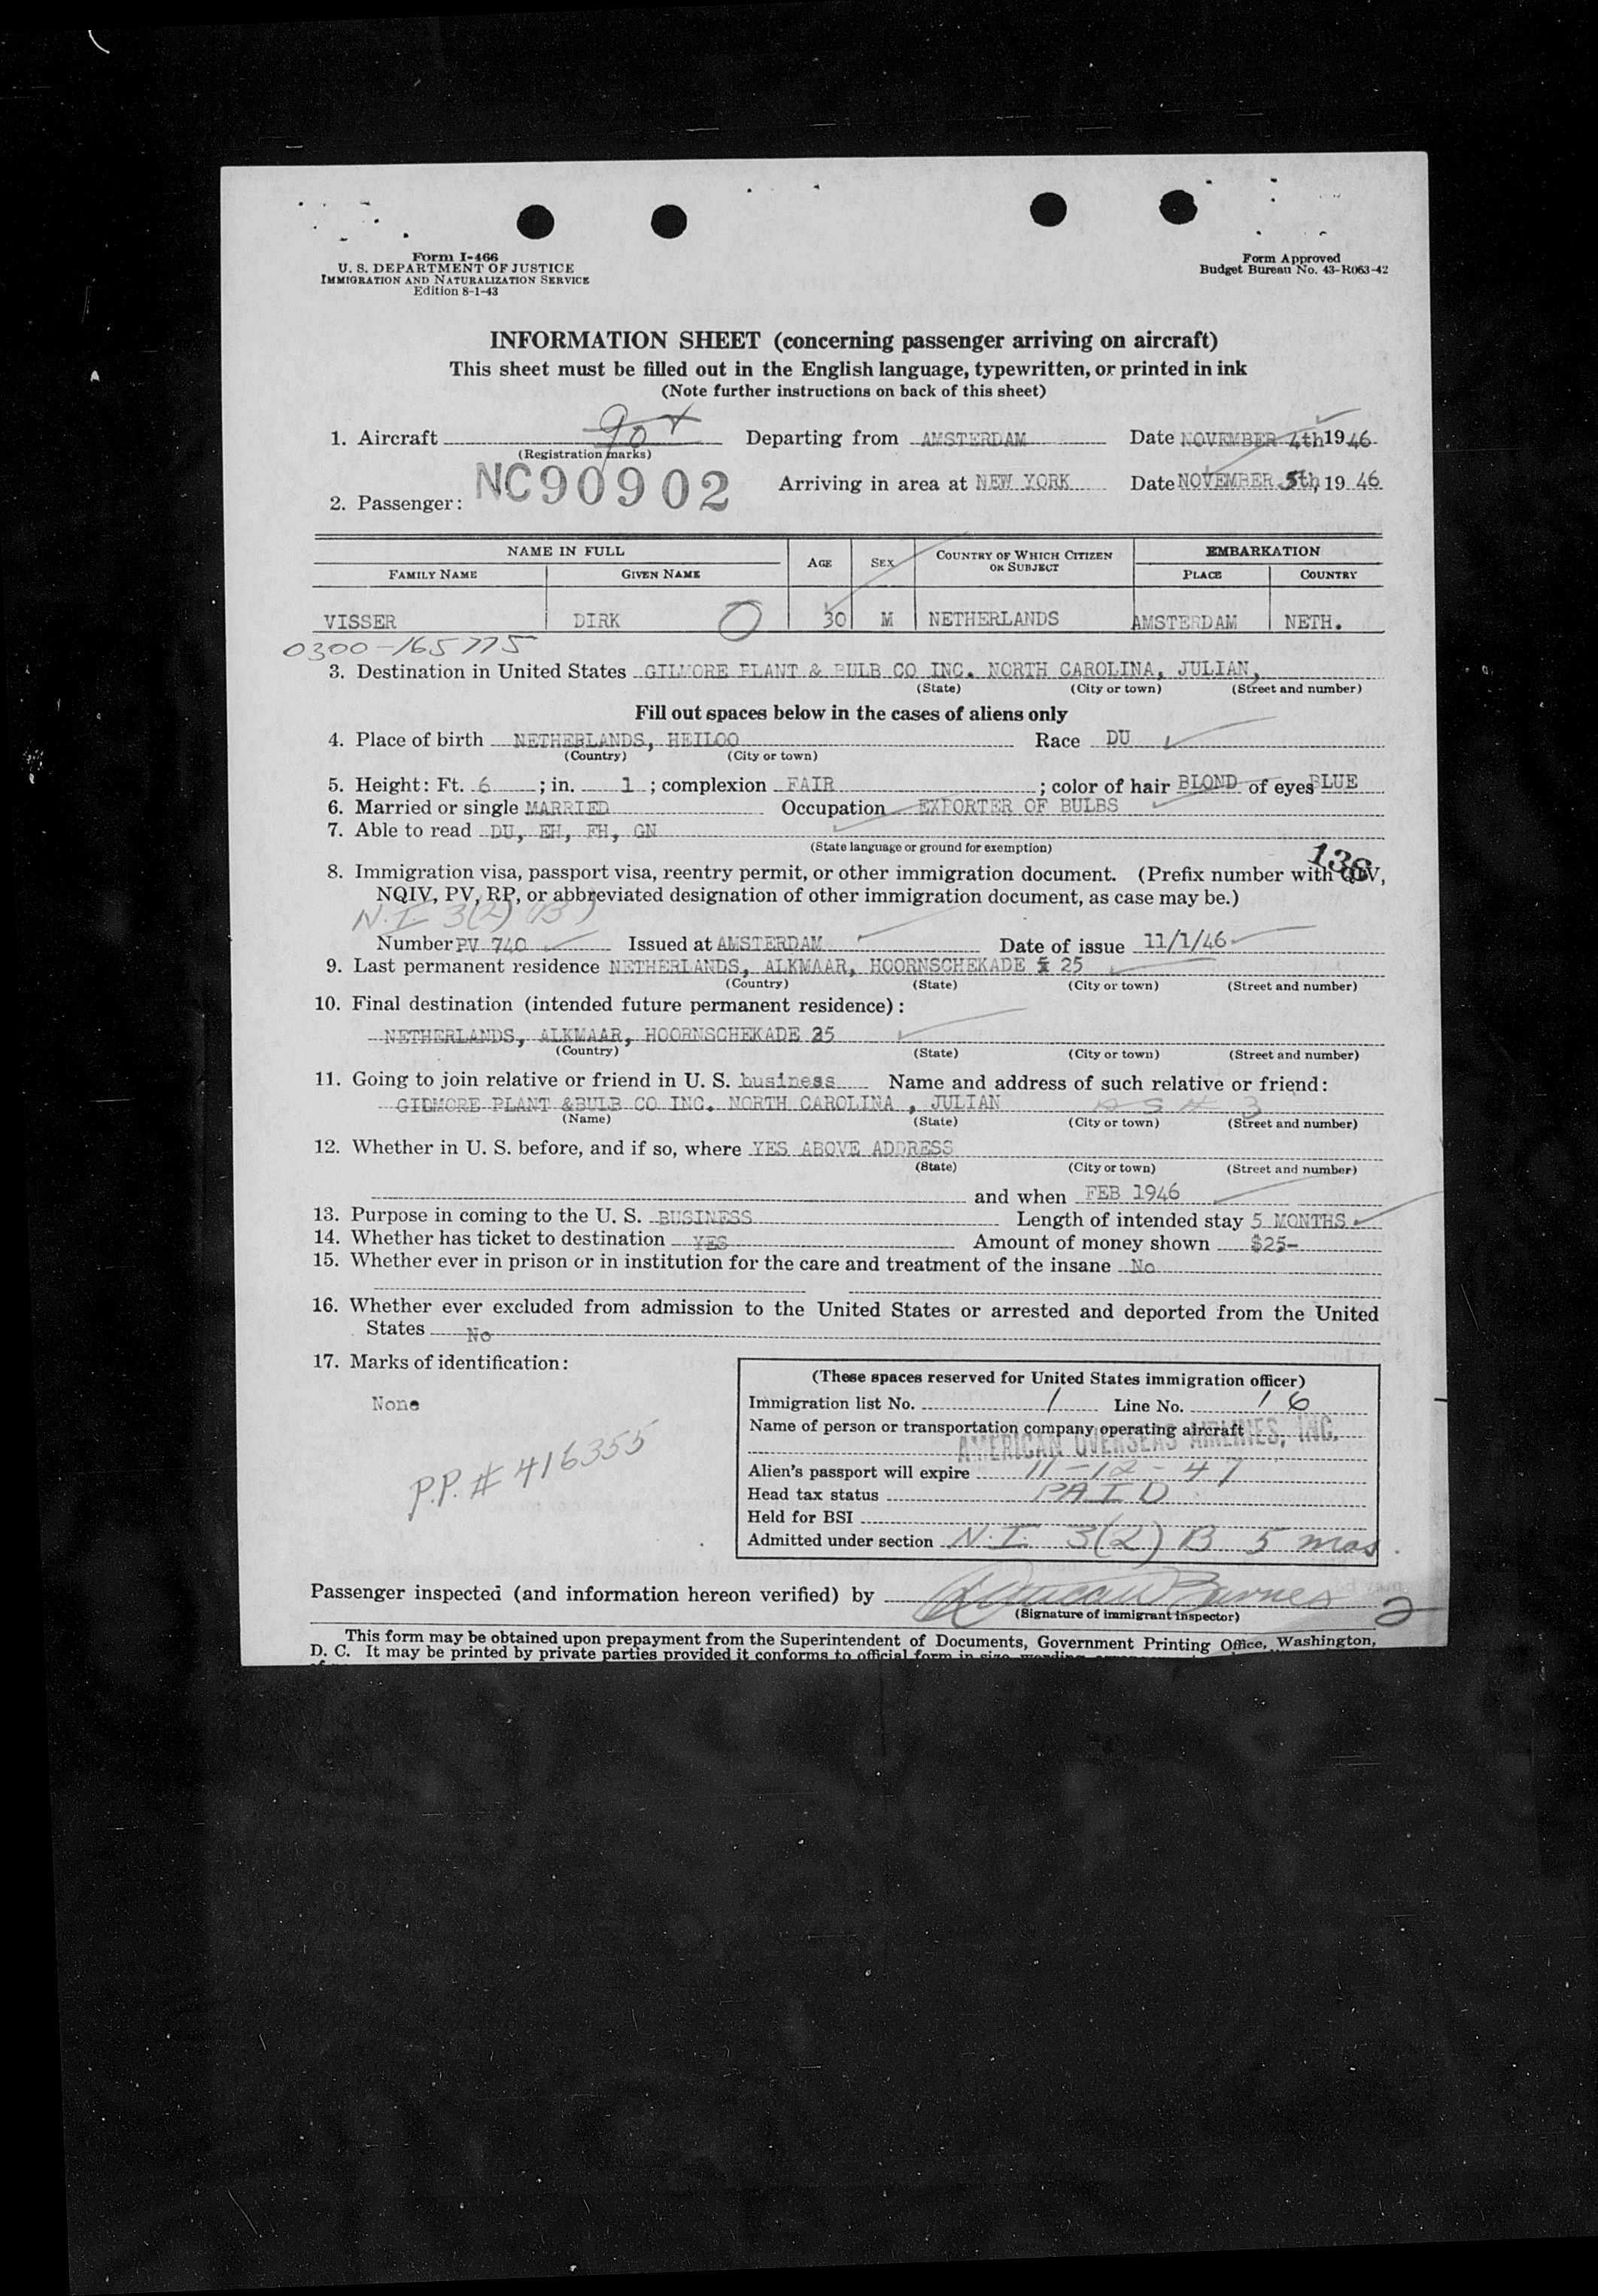 Form I-466
U. S. DEPARTMENT OF JUSTICE
IMMIGRATION AND NATURALIZATION SERVICE
Edition 8-1-43
Form Approved
Budget Bureau No. 43-R063-42
INFORMATION SHEET (concerning passenger arriving on aircraft)
This sheet must be filled out in the English language, typewritten, or printed in ink
(Note further instructions on back of this sheet)
1. Aircraft Departing from AMSTERDAM Date NOVEMBER 4th 1946
(Registration marks)
NC90902 Arriving in area at NEW YORK Date NOVEMBER 5th, 1946
2. Passenger:
NAME IN FULL AGE SEX COUNTRY OF WHICH CITIZEN OR SUBJECT EMBARKATION
FAMILY NAME GIVEN NAME PLACE COUNTRY
VISSER DIRK 30 M NETHERLANDS AMSTERDAM NETH.
0300-165775
3. Destination in United States GILMORE PLANT & BULB CO INC. NORTH CAROLINA, JULIAN,
(State) (City or town) (Street and number)
Fill out spaces below in the cases of aliens only
4. Place of birth NETHERLANDS, HEILOO Race DU
(Country) (City or town)
5. Height: Ft. 6 ; in. 1 ; complexion FAIR ; color of hair BLOND of eyes BLUE
6. Married or single MARRIED Occupation EXPORTER OF BULBS
7. Able to read DU, EH, FH, GN
(State language or ground for exemption)
138
8. Immigration visa, passport visa, reentry permit, or other immigration document. (Prefix number with QIV,
NQIV, PV, RP, or abbreviated designation of other immigration document, as case may be.)
N.I. 3(2) (B)
Number PV 740 Issued at AMSTERDAM Date of issue 11/1/46
9. Last permanent residence NETHERLANDS, ALKMAAR, HOORNSCHEKADE 25
(Country) (State) (City or town) (Street and number)
10. Final destination (intended future permanent residence):
NETHERLANDS, ALKMAAR, HOORNSCHEKADE 25
(Country) (State) (City or town) (Street and number)
11. Going to join relative or friend in U. S. business Name and address of such relative or friend:
GIDMORE PLANT &BULB CO INC. NORTH CAROLINA , JULIAN
(Name) (State) (City or town) (Street and number)
12. Whether in U. S. before, and if so, where YES ABOVE ADDRESS
(State) (City or town) (Street and number)
and when FEB 1946
13. Purpose in coming to the U. S. BUSINESS Length of intended stay 5 MONTHS
14. Whether has ticket to destination YES Amount of money shown $25-
15. Whether ever in prison or in institution for the care and treatment of the insane No
16. Whether ever excluded from admission to the United States or arrested and deported from the United
States No
17. Marks of identification:
None
P.P. # 416355
(These spaces reserved for United States immigration officer)
Immigration list No. 1 Line No. 16
Name of person or transportation company operating aircraft
AMERICAN OVERSEAS AIRLINES, INC.
Alien's passport will expire 11-12-47
Head tax status PAID
Held for BSI
Admitted under section N.I. 3(2) B 5 mos.
Passenger inspected (and information hereon verified) by Duncan Burnes
(Signature of immigrant inspector)
2
This form may be obtained upon prepayment from the Superintendent of Documents, Government Printing Office, Washington,
D. C. It may be printed by private parties provided it conforms to official form in size, wording,